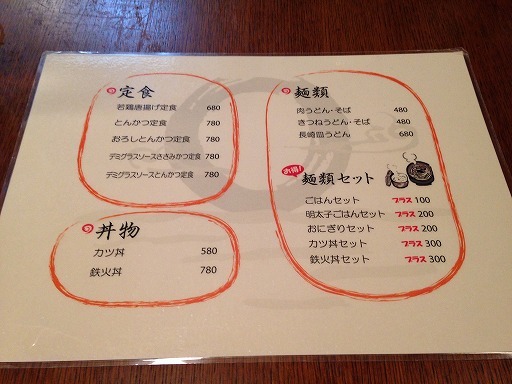 定食
若鶏唐揚げ定食 680
とんかつ定食 780
おろしとんかつ定食 780
デミグラスソースささみかつ定食 780
デミグラスソースとんかつ定食 780
丼物
カツ丼 580
鉄火丼 780
麺類
肉うどん・そば 480
きつねうどん・そば 480
長崎皿うどん 680
お得! 麺類セット
ごはんセット プラス100
明太子ごはんセット プラス200
おにぎりセット プラス200
カツ丼セット プラス300
鉄火丼セット プラス300